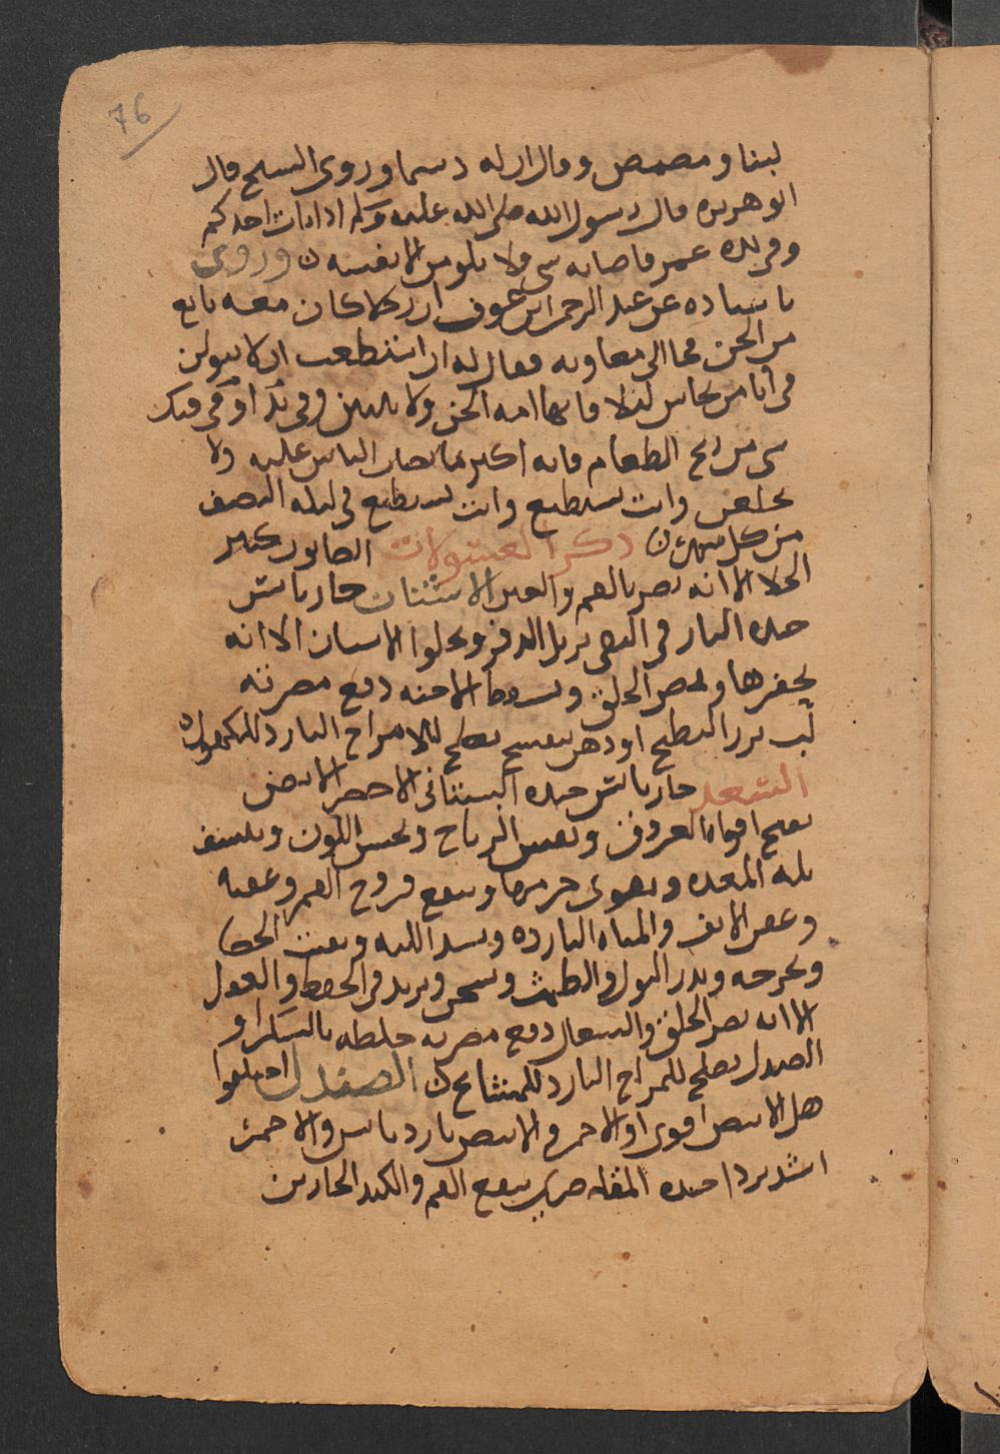 76
لبنا ومصمص وقال ان له دسما وروى الشيخ قال
ابو هريره قال رسول الله صلى الله عليه وسلم اذا بات احدكم
وفي يده غمر فاصابه شي فلا يلومن الا نفسه ن وروى
باسناده عن عبد الرحمن بن عوف ان رجلا كان معه تابع
من الجن فجا الى معاويه فقال له ان استطعت ان لا تبولن
في انا من نحاس ليلا فانها امه الجن ولا تبيتن وفي يدك او في فيك
شي من ريح الطعام فانه اكثر ما يصاب الناس عليه ولا
وانت تستطيع وانت تستطيع في ليله النصف
من كل شهر ن ذكر الغسولات الصابون كثير
الجلا الا انه يضر بالفم والعين الاشنان حار يابس
حده البار في النقى يزيل الدفر ويجلوا الاسنان الا انه
يحفرها ويضر الحلق ويسقط الاجنه دفع مضرته
لب بزر البطيخ او دهن بنفسج يصلح للامزاج البارد للكهول
السعد حار يابس جيده البستاني الاخضر الابيض
يفتح افواه العروق ويفش الرياح ويحسن اللون وينشف
بله المعده ويقوى جرمها وينفع قروح الفم وعفنه
وعفن الانف والمياه البارده ويشد اللثه ويفتت الحصا
ويخرجه ويدر البول والطمث ويسخن ويزيد في الحفظ والعقل
الا انه يضر الحلق والسعال دفع مضرته خلطه بالسكر او
الصندل يصلح للمزاج البارد للمشايخ ن الصندل اختلفوا
هل الابيض اقوى او الاحمر والابيض بارد يابس والاحمر
اشد بردا جيده ينفع الفم والكبد الحارين